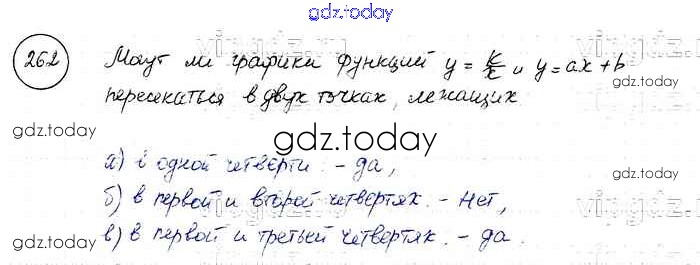 gdz.today
262 Могут ли графики функций y = k/x и y = ax + b
пересекаться в двух точках, лежащих
gdz.today
gdz.today
gdz.today
а) в одной четверти. - да,
б) в первой и второй четвертях. - нет,
в) в первой и третьей четвертях. - да.
gdz.today
gdz.today